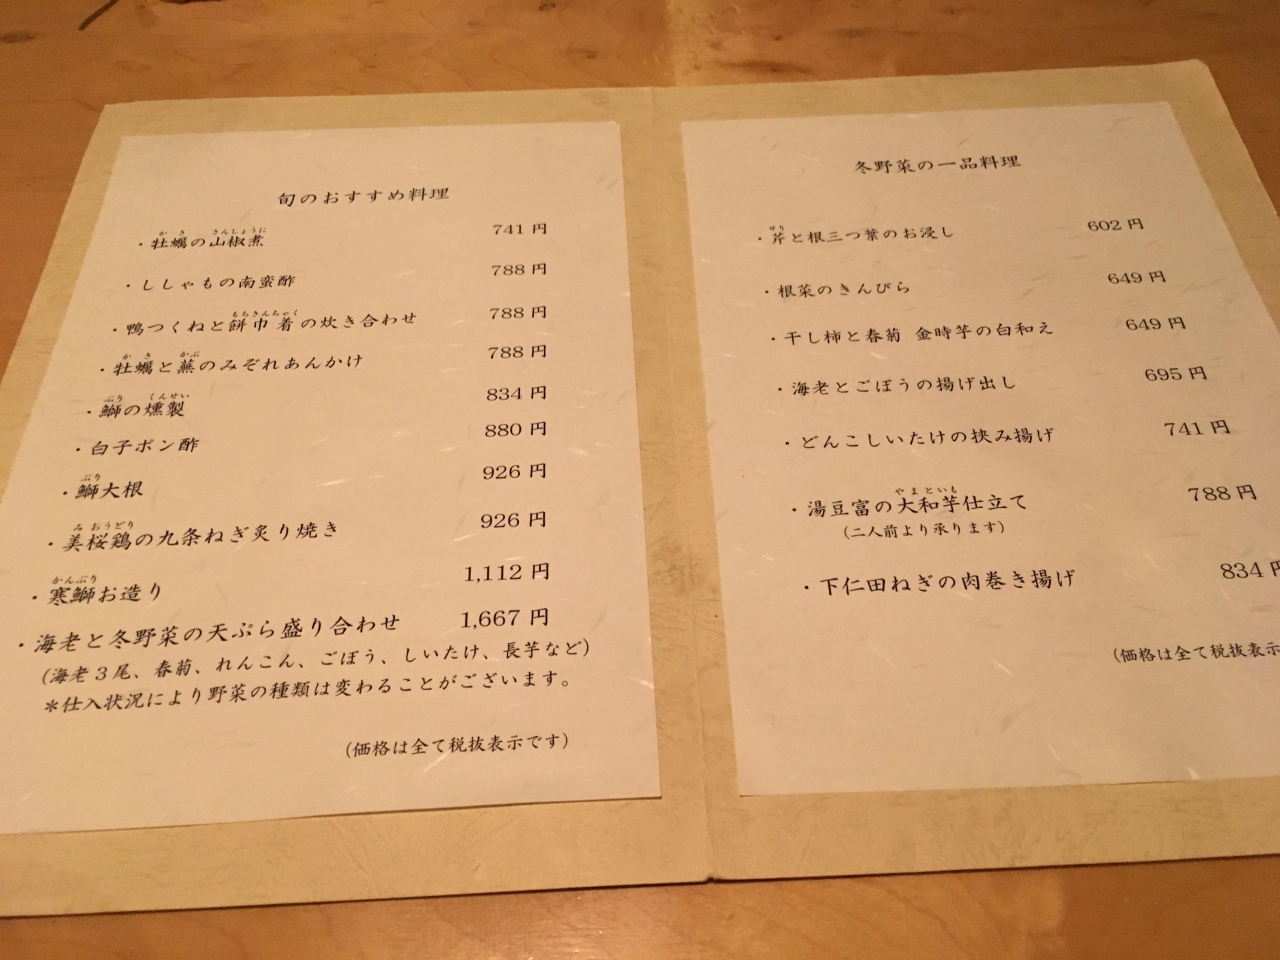 旬のおすすめ料理
・牡蠣の山椒煮 741 円
・ししゃもの南蛮酢 788 円
・鴨つくねと餅巾着の炊き合わせ 788 円
・牡蠣と蕪のみぞれあんかけ 788 円
・鰤の燻製 834 円
・白子ポン酢 880 円
・鰤大根 926 円
・美桜鶏の九条ねぎ炙り焼き 926 円
・寒鰤お造り 1,112 円
・海老と冬野菜の天ぷら盛り合わせ 1,667 円
(海老３尾、春菊、れんこん、ごぼう、しいたけ、長芋など)
＊仕入状況により野菜の種類は変わることがございます。
(価格は全て税抜表示です)
冬野菜の一品料理
・芹と根三つ葉のお浸し 602 円
・根菜のきんぴら 649 円
・干し柿と春菊 金時芋の白和え 649 円
・海老とごぼうの揚げ出し 695 円
・どんこしいたけの挟み揚げ 741 円
・湯豆富の大和芋仕立て 788 円
(二人前より承ります)
・下仁田ねぎの肉巻き揚げ 834 円
(価格は全て税抜表示